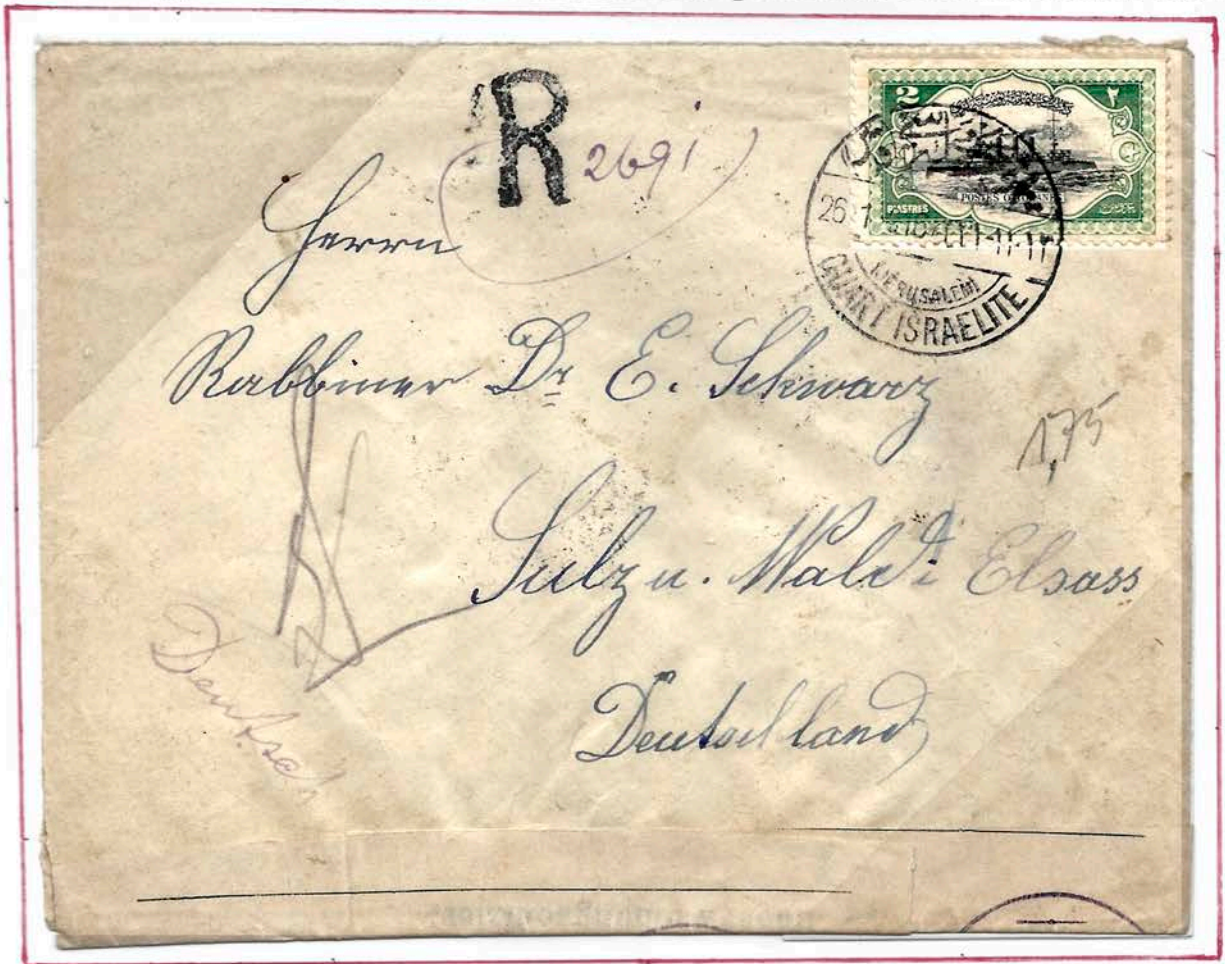 R 2691
2 ٢
POSTES OTTOMANES
PIASTRES
(JÉRUSALEM)
QUART ISRAELITE
Herrn
Rabbiner Dr E. Schwarz
1,75
Sulz u. Wald i Elsass
Deutschland
Deutsch